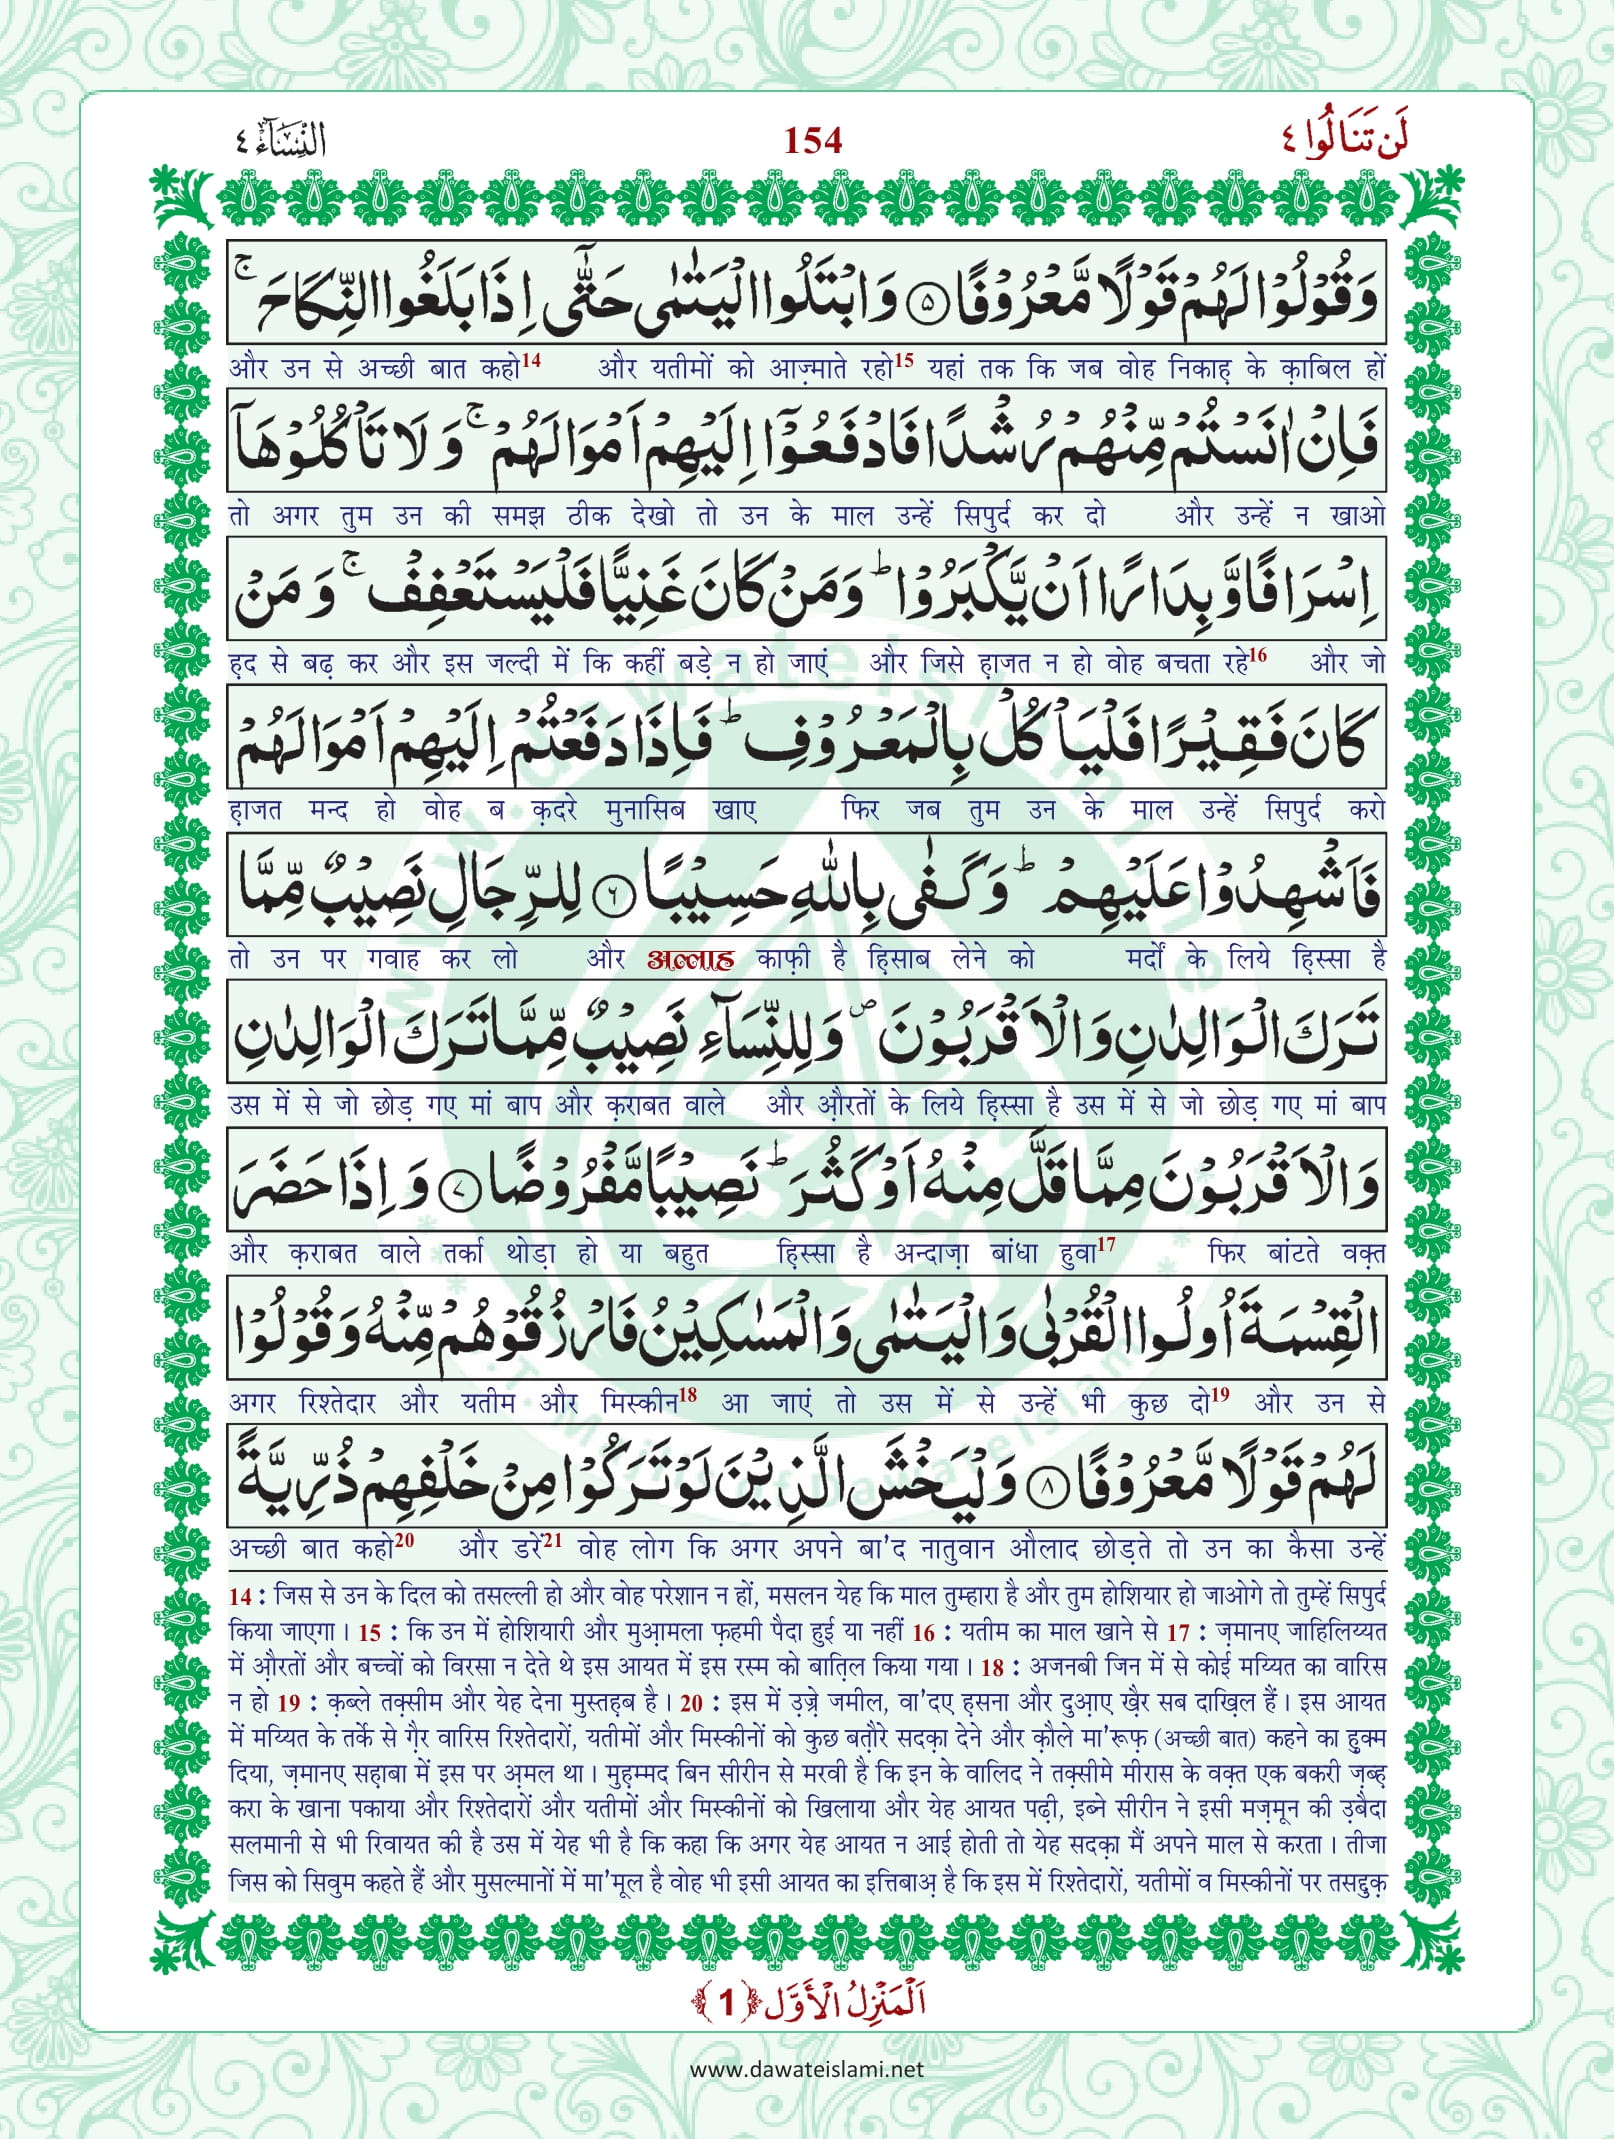 لَنْ تَنَالُوا ٤
154
النِّسَآء ٤
وَقُوْلُوْا لَهُمْ قَوْلًا مَّعْرُوْفًا ۝۵ وَابْتَلُوا الْیَتٰمٰى حَتّٰۤى اِذَا بَلَغُوا النِّكَاحَ ۚ
और उन से अच्छी बात कहो14 और यतीमों को आज़्माते रहो15 यहां तक कि जब वोह निकाह़ के क़ाबिल हों
فَاِنْ اٰنَسْتُمْ مِّنْهُمْ رُشْدًا فَادْفَعُوْۤا اِلَیْهِمْ اَمْوَالَهُمْ ۚ وَ لَا تَاْكُلُوْهَاۤ
तो अगर तुम उन की समझ ठीक देखो तो उन के माल उन्हें सिपुर्द कर दो और उन्हें न खाओ
اِسْرَافًا وَّ بِدَارًا اَنْ یَّكْبَرُوْا ؕ وَ مَنْ كَانَ غَنِیًّا فَلْیَسْتَعْفِفْ ۚ وَ مَنْ
ह़द से बढ़ कर और इस जल्दी में कि कहीं बड़े न हो जाएं और जिसे ह़ाजत न हो वोह बचता रहे16 और जो
كَانَ فَقِیْرًا فَلْیَاْكُلْ بِالْمَعْرُوْفِ ؕ فَاِذَا دَفَعْتُمْ اِلَیْهِمْ اَمْوَالَهُمْ
ह़ाजत मन्द हो वोह ब क़दरे मुनासिब खाए फिर जब तुम उन के माल उन्हें सिपुर्द करो
فَاَشْهِدُوْا عَلَیْهِمْ ؕ وَ كَفٰى بِاللّٰهِ حَسِیْبًا ۝۶ لِلرِّجَالِ نَصِیْبٌ مِّمَّا
तो उन पर गवाह कर लो और अल्लाह काफ़ी है ह़िसाब लेने को मर्दों के लिये ह़िस्सा है
تَرَكَ الْوَالِدٰنِ وَ الْاَقْرَبُوْنَ ۪ وَ لِلنِّسَآءِ نَصِیْبٌ مِّمَّا تَرَكَ الْوَالِدٰنِ
उस में से जो छोड़ गए मां बाप और क़राबत वाले और औ़रतों के लिये ह़िस्सा है उस में से जो छोड़ गए मां बाप
وَ الْاَقْرَبُوْنَ مِمَّا قَلَّ مِنْهُ اَوْ كَثُرَ ؕ نَصِیْبًا مَّفْرُوْضًا ۝۷ وَ اِذَا حَضَرَ
और क़राबत वाले तर्का थोड़ा हो या बहुत ह़िस्सा है अन्दाज़ा बांधा हुवा17 फिर बांटते वक़्त
الْقِسْمَةَ اُولُوا الْقُرْبٰى وَ الْیَتٰمٰى وَ الْمَسٰكِیْنُ فَارْزُقُوْهُمْ مِّنْهُ وَ قُوْلُوْا
अगर रिश्तेदार और यतीम और मिस्कीन18 आ जाएं तो उस में से उन्हें भी कुछ दो19 और उन से
لَهُمْ قَوْلًا مَّعْرُوْفًا ۝۸ وَ لْیَخْشَ الَّذِیْنَ لَوْ تَرَكُوْا مِنْ خَلْفِهِمْ ذُرِّیَّةً
अच्छी बात कहो20 और डरें21 वोह लोग कि अगर अपने बा'द नातुवान औलाद छोड़ते तो उन का कैसा उन्हें
14 : जिस से उन के दिल को तसल्ली हो और वोह परेशान न हों, मसलन येह कि माल तुम्हारा है और तुम होशियार हो जाओगे तो तुम्हें सिपुर्द
किया जाएगा। 15 : कि उन में होशियारी और मुआ़मला फ़हमी पैदा हुई या नहीं 16 : यतीम का माल खाने से 17 : ज़मानए जाहिलिय्यत
में औ़रतों और बच्चों को विरसा न देते थे इस आयत में इस रस्म को बात़िल किया गया। 18 : अजनबी जिन में से कोई मय्यित का वारिस
न हो 19 : क़ब्ले तक़्सीम और येह देना मुस्तह़ब है। 20 : इस में उ़ज़्रे जमील, वा'दए ह़सना और दुआ़ए ख़ैर सब दाख़िल हैं। इस आयत
में मय्यित के तर्के से ग़ैर वारिस रिश्तेदारों, यतीमों और मिस्कीनों को कुछ बत़ौरे सदक़ा देने और क़ौले मा'रूफ़ (अच्छी बात) कहने का हुक्म
दिया, ज़मानए सह़ाबा में इस पर अ़मल था। मुह़म्मद बिन सीरीन से मरवी है कि इन के वालिद ने तक़्सीमे मीरास के वक़्त एक बकरी ज़ब्ह़
करा के खाना पकाया और रिश्तेदारों और यतीमों और मिस्कीनों को खिलाया और येह आयत पढ़ी, इब्ने सीरीन ने इसी मज़्मून की उ़बैदा
सलमानी से भी रिवायत की है उस में येह भी है कि कहा कि अगर येह आयत न आई होती तो येह सदक़ा मैं अपने माल से करता। तीजा
जिस को सिवुम कहते हैं और मुसल्मानों में मा'मूल है वोह भी इसी आयत का इत्तिबाअ़ है कि इस में रिश्तेदारों, यतीमों व मिस्कीनों पर तसद्दुक़
اَلْمَنْزِلُ الْاَوَّل ﴿1﴾
www.dawateislami.net